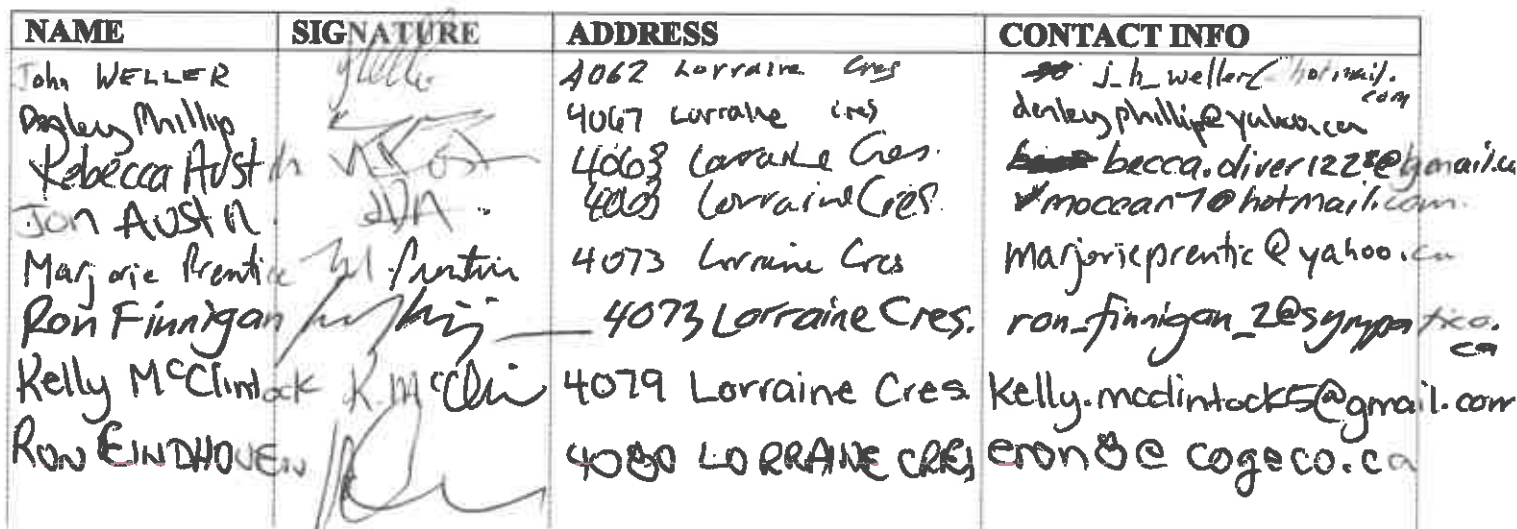 NAME SIGNATURE ADDRESS CONTACT INFO
John WELLER 4062 Lorraine Cres j_h_weller@hotmail.
com
Phillip 4067 Lorraine cres
Rebecca Austin 4063 Lorraine Cres. becca.diver1228@gmail.c
Jon AUSTIN. JDA. 4063 Lorraine Cres. mocean7@hotmail.com.
Marjorie Prentice M. Prentice 4073 Lorraine Cres marjorieprentic@yahoo.ca
Ron Finnigan 4073 Lorraine Cres. ron_finnigan_2@sympatico.
ca
Kelly McClintock K. McCli 4079 Lorraine Cres. kelly.mcclintock5@gmail.com
RON EINDHOVEN 4080 LORRAINE CRES eron8@cogeco.ca